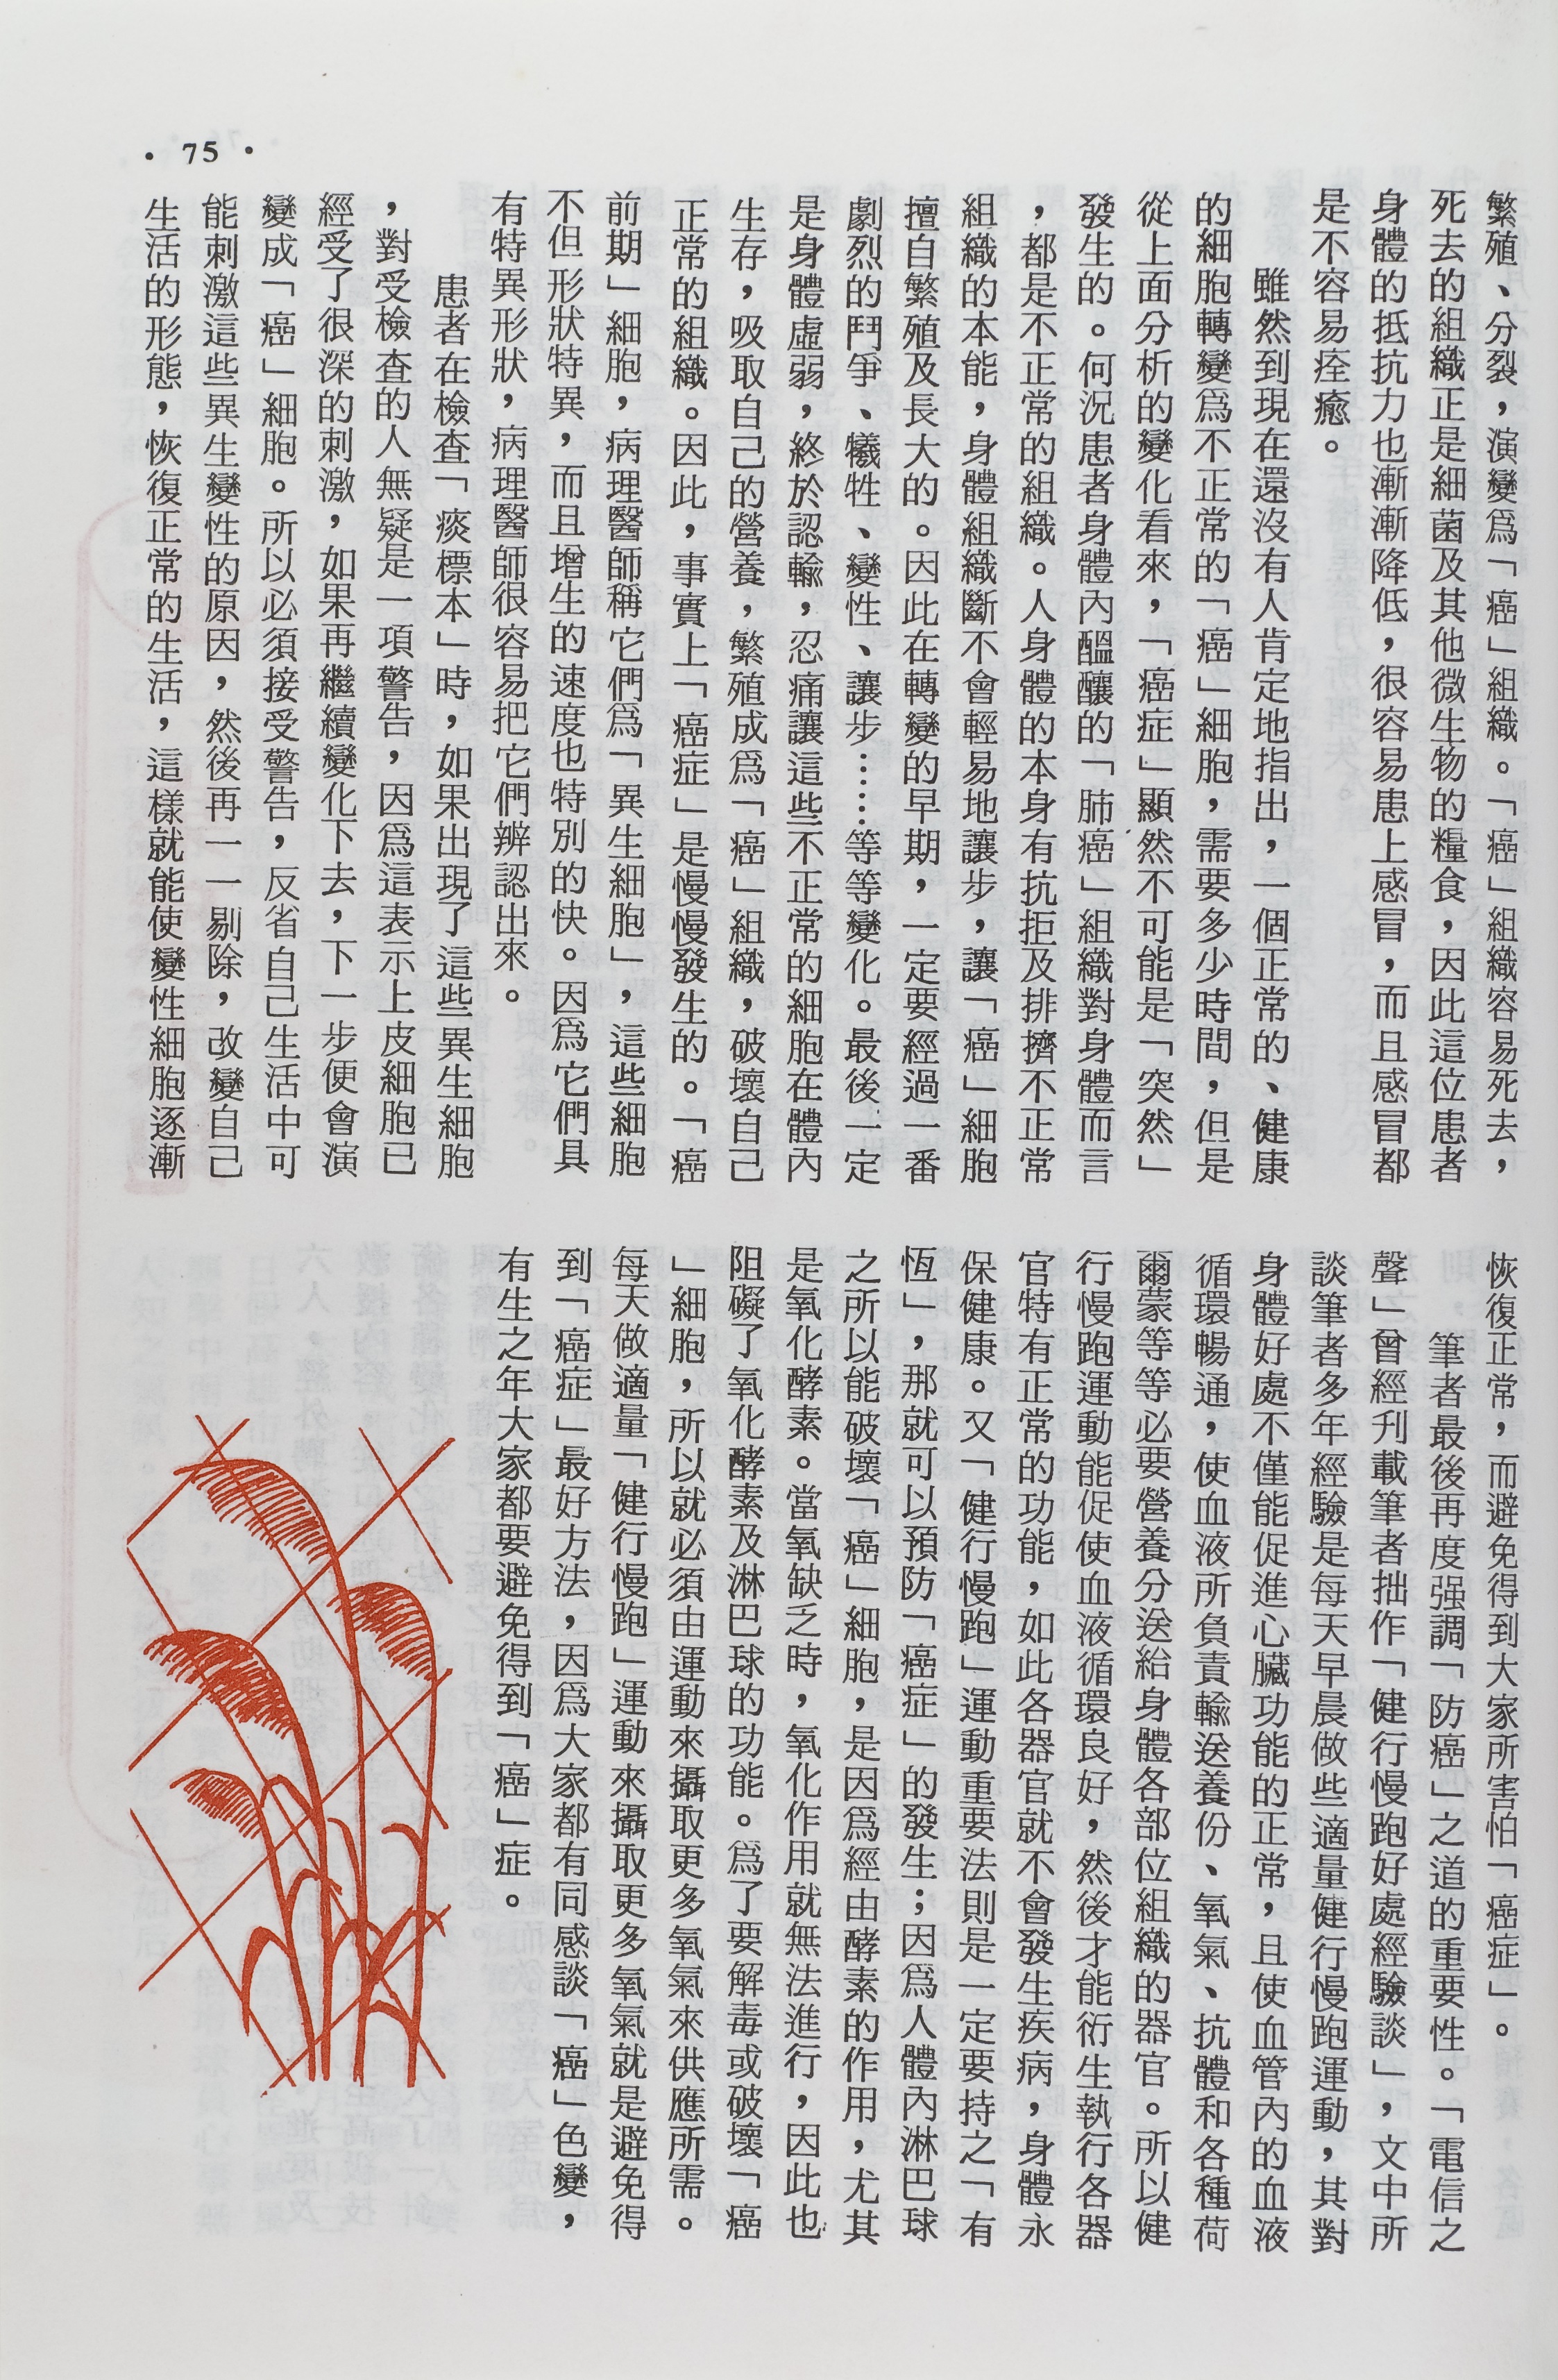 • 75 •
繁殖、分裂，演變爲「癌」組織。「癌」組織容易死去，
死去的組織正是細菌及其他微生物的糧食，因此這位患者
身體的抵抗力也漸漸降低，很容易患上感冒，而且感冒都
是不容易痊癒。
雖然到現在還沒有人肯定地指出，一個正常的、健康
的細胞轉變爲不正常的「癌」細胞，需要多少時間，但是
從上面分析的變化看來，「癌症」顯然不可能是「突然」
發生的。何況患者身體內醞釀的「肺癌」組織對身體而言
，都是不正常的組織。人身體的本身有抗拒及排擠不正常
組織的本能，身體組織斷不會輕易地讓步，讓「癌」細胞
擅自繁殖及長大的。因此在轉變的早期，一定要經過一番
劇烈的鬥爭、犧牲、變性、讓步……等等變化。最後一定
是身體虛弱，終於認輸，忍痛讓這些不正常的細胞在體內
生存，吸取自己的營養，繁殖成爲「癌」組織，破壞自己
正常的組織。因此，事實上「癌症」是慢慢發生的。「癌
前期」細胞，病理醫師稱它們爲「異生細胞」，這些細胞
不但形狀特異，而且增生的速度也特別的快。因爲它們具
有特異形狀，病理醫師很容易把它們辨認出來。
患者在檢查「痰標本」時，如果出現了這些異生細胞
，對受檢查的人無疑是一項警告，因爲這表示上皮細胞已
經受了很深的刺激，如果再繼續變化下去，下一步便會演
變成「癌」細胞。所以必須接受警告，反省自己生活中可
能刺激這些異生變性的原因，然後再一一剔除，改變自己
生活的形態，恢復正常的生活，這樣就能使變性細胞逐漸
恢復正常，而避免得到大家所害怕「癌症」。
筆者最後再度强調「防癌」之道的重要性。「電信之
聲」曾經刋載筆者拙作「健行慢跑好處經驗談」，文中所
談筆者多年經驗是每天早晨做些適量健行慢跑運動，其對
身體好處不僅能促進心臟功能的正常，且使血管內的血液
循環暢通，使血液所負責輸送養份、氧氣、抗體和各種荷
爾蒙等等必要營養分送給身體各部位組織的器官。所以健
行慢跑運動能促使血液循環良好，然後才能衍生執行各器
官特有正常的功能，如此各器官就不會發生疾病，身體永
保健康。又「健行慢跑」運動重要法則是一定要持之「有
恆」，那就可以預防「癌症」的發生；因爲人體內淋巴球
之所以能破壞「癌」細胞，是因爲經由酵素的作用，尤其
是氧化酵素。當氧缺乏時，氧化作用就無法進行，因此也
阻礙了氧化酵素及淋巴球的功能。爲了要解毒或破壞「癌
」細胞，所以就必須由運動來攝取更多氧氣來供應所需。
每天做適量「健行慢跑」運動來攝取更多氧氣就是避免得
到「癌症」最好方法，因爲大家都有同感談「癌」色變，
有生之年大家都要避免得到「癌」症。